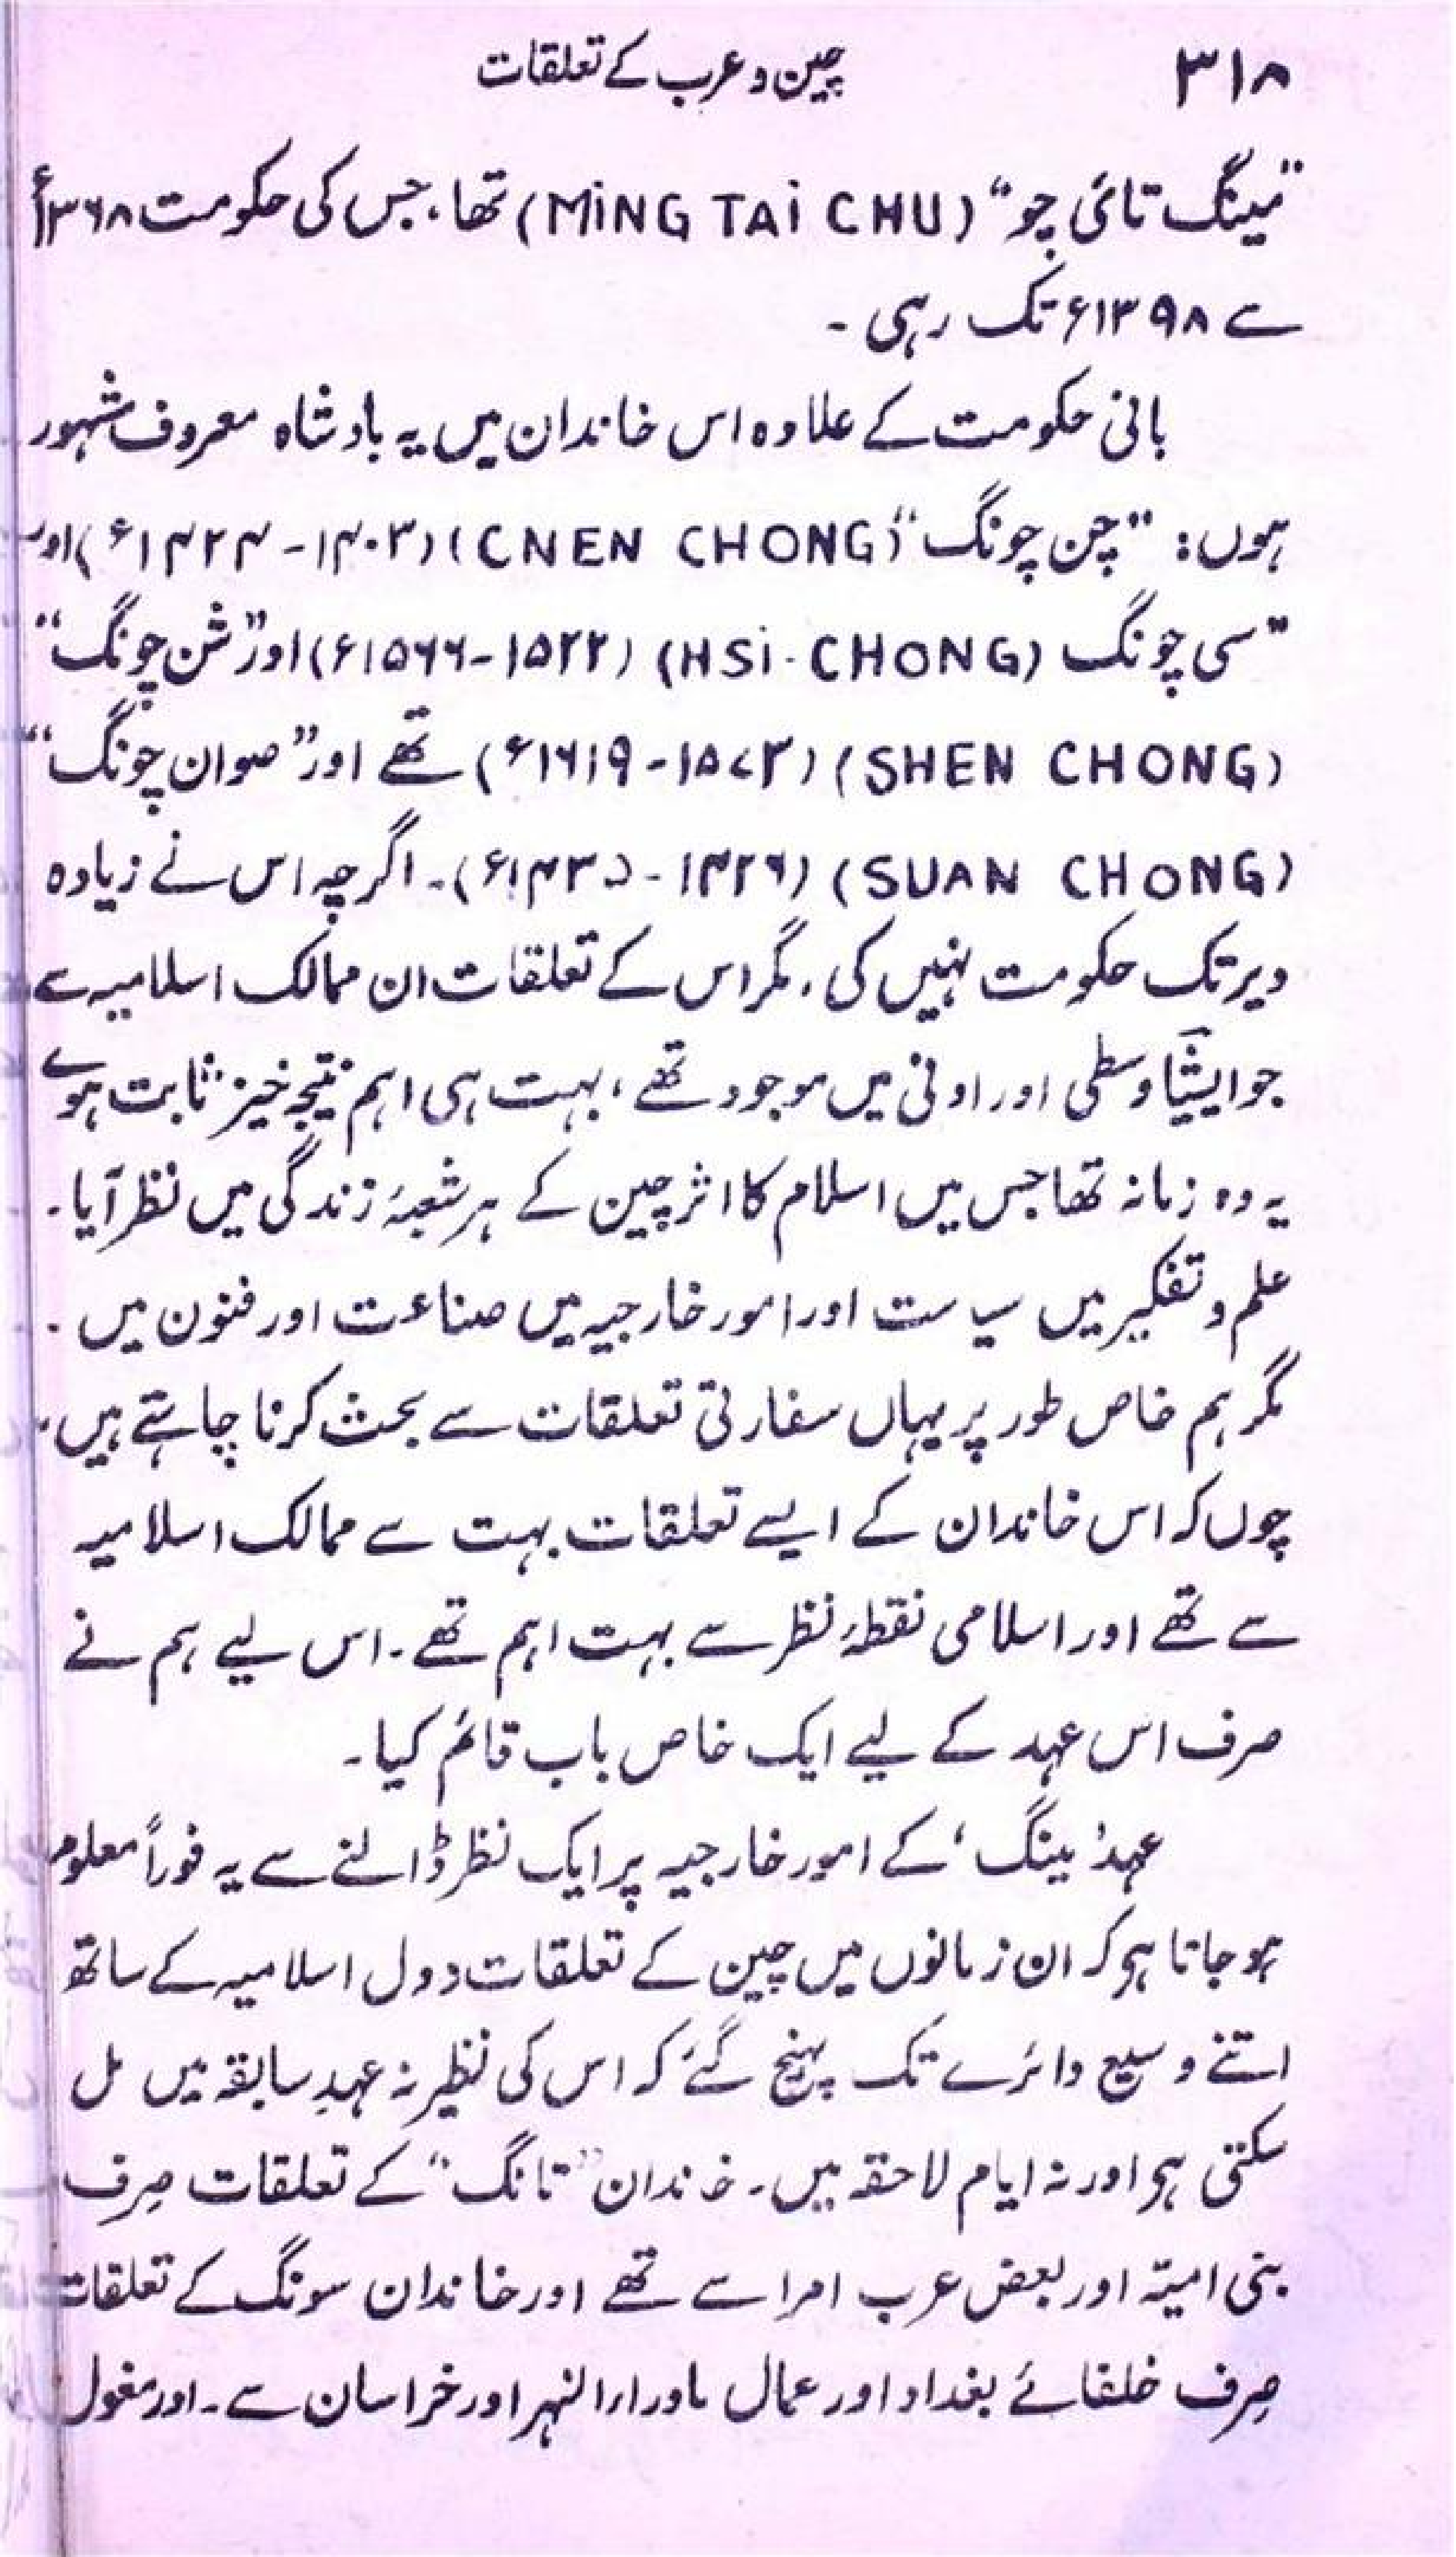 ۳۱۸ چین و عرب کے تعلقات
"مینگ تائی چو" (MiNG TAi CHU) تھا، جس کی حکومت ۱۳۶۸ء
سے ۱۳۹۸ء تک رہی ۔
بانی حکومت کے علاوہ اس خاندان میں یہ بادشاہ معروف مشہور
ہوں: "چن چونگ" (CNEN CHONG) (۱۴۰۳ - ۱۴۲۴ء) اور
"سی چونگ (HSi-CHONG) (۱۵۲۲-۱۵۶۶ء) اور "شن چونگ"
(SHEN CHONG) (۱۵۷۳-۱۶۱۹ء) تھے اور "صوان چونگ"
(SUAN CHONG) (۱۴۲۶-۱۴۳۵ء)۔ اگرچہ اس نے زیادہ
دیر تک حکومت نہیں کی، مگر اس کے تعلقات ان ممالک اسلامیہ سے
جو ایشیا وسطی اور ادنی میں موجود تھے، بہت ہی اہم نتیجہ خیز ثابت ہوے
یہ وہ زمانہ تھا جس میں اسلام کا اثر چین کے ہر شعبۂ زندگی میں نظر آیا۔
علم و تفکیر میں سیاست اور امور خارجیہ میں صناعت اور فنون میں ۔
مگر ہم خاص طور پر یہاں سفارتی تعلقات سے بحث کرنا چاہتے ہیں،
چوں کہ اس خاندان کے ایسے تعلقات بہت سے ممالک اسلامیہ
سے تھے اور اسلامی نقطۂ نظر سے بہت اہم تھے۔ اس لیے ہم نے
صرف اس عہد کے لیے ایک خاص باب قائم کیا۔
عہد 'مینگ' کے امور خارجیہ پر ایک نظر ڈالنے سے یہ فوراً معلوم
ہو جاتا ہی کہ ان زمانوں میں چین کے تعلقات دول اسلامیہ کے ساتھ
اتنے وسیع دائرے تک پہنچ گئے کہ اس کی نظیر نہ عہدِ سابقہ میں مل
سکتی ہی اور نہ ایام لاحقہ میں۔ خاندان "تانگ" کے تعلقات صِرف
بنی امیّہ اور بعض عرب امرا سے تھے اور خاندان سونگ کے تعلقات
صِرف خلفائے بغداد اور عمال ماوراء النہر اور خراسان سے۔ اور مغول